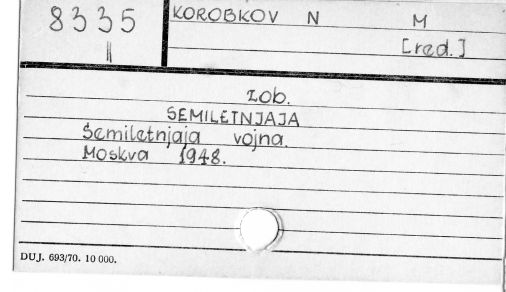 8335
||
KOROBKOV N M
[red.]
zob.
SEMILETNJAJA
Semiletnjaja vojna.
Moskva 1948.
DUJ. 693/70. 10 000.